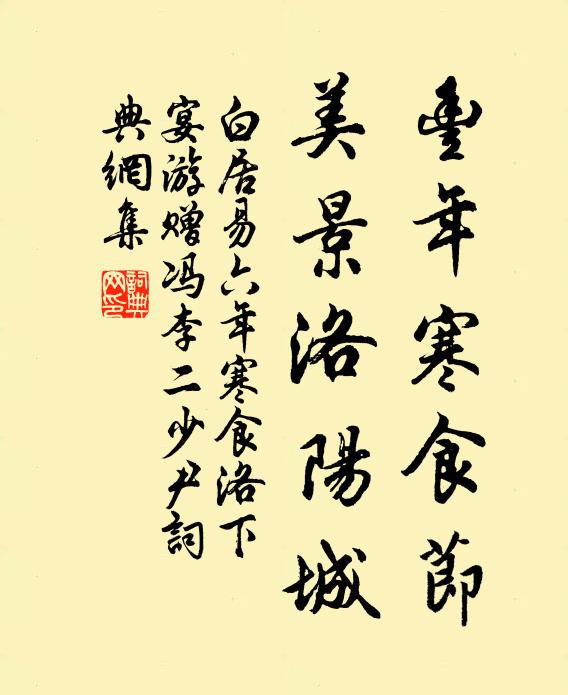 豐年寒食節
美景洛陽城
白居易六年寒食洛下
宴游赠冯李二少尹詞
典網集
詞典
网印